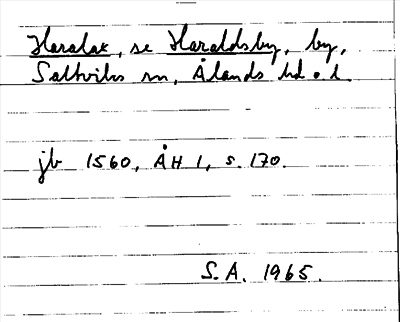 Haralax, se Haraldsby, by,
Saltviks sn, Ålands hd o. l.
jb 1560, ÅH 1, s. 170.
S.A. 1965.